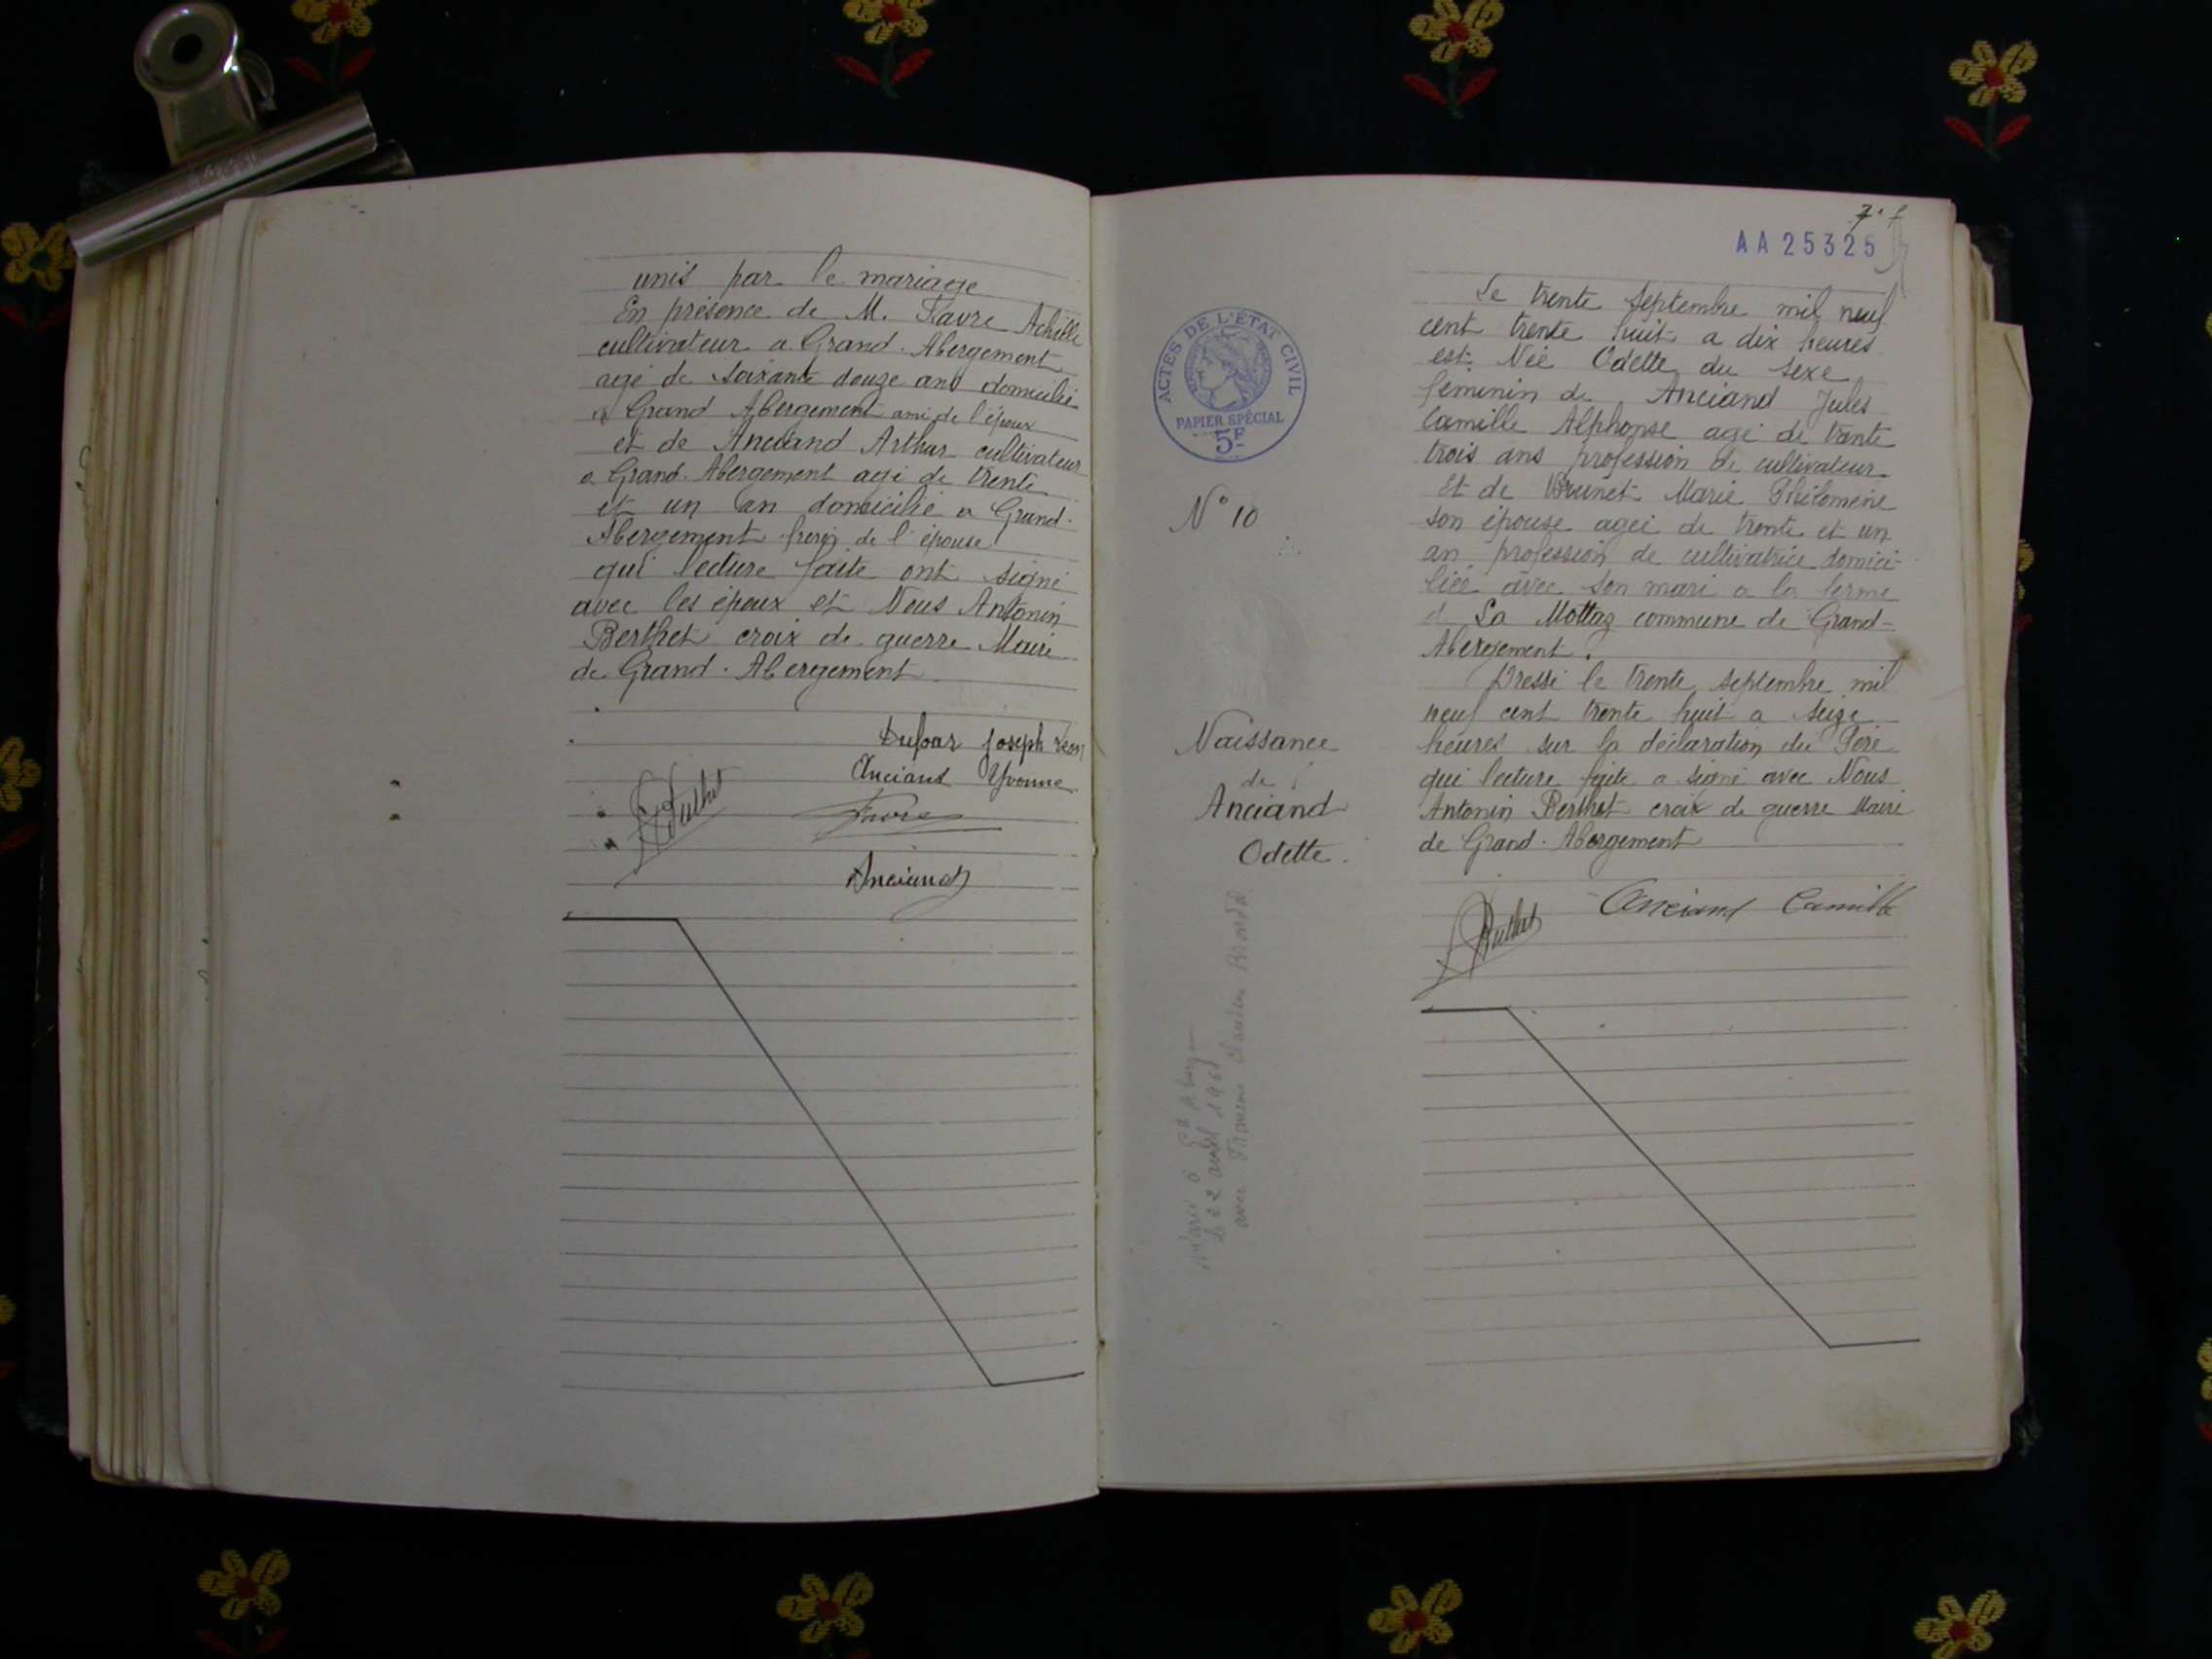 unis par le mariage
En présence de M. Favre Achille
cultivateur a Grand. Abergement
agé de soixante douze ans domicilié
a Grand Abergement ami de l'époux
et de Anciand Arthur cultivateur
a Grand. Abergement agé de trente
et un an domicilié a Grand-
Abergement frère de l'épouse
qui lecture faite ont signé
avec les époux et Nous Antonin
Berthet croix de guerre Maire
de Grand. Abergement
Dufour Joseph Léon
Anciant Yvonne
Berthet
Favre
Anciand
AA 25325
ACTES DE L'ÉTAT CIVIL
PAPIER SPÉCIAL
5F
N° 10
Naissance
de
Anciand
Odette.
à Gd Aberg
le 22 avril 1961
avec
Le trente septembre mil neuf
cent trente huit a dix heures
est Née Odette du sexe
feminin de Anciand Jules
Camille Alphonse agé de trente
trois ans profession de cultivateur
et de Brunet Marie Philomène
son épouse agée de trente et un
an profession de cultivatrice domici-
liée avec son mari a la ferme
d La Mottaz commune de Grand-
Abergement.
Dressé le trente septembre mil
neuf cent trente huit a seize
heures sur la déclaration du Père
qui lecture faite a signé avec Nous
Antonin Berthet croix de guerre Maire
de Grand. Abergement
Anciand Camille
Berthet